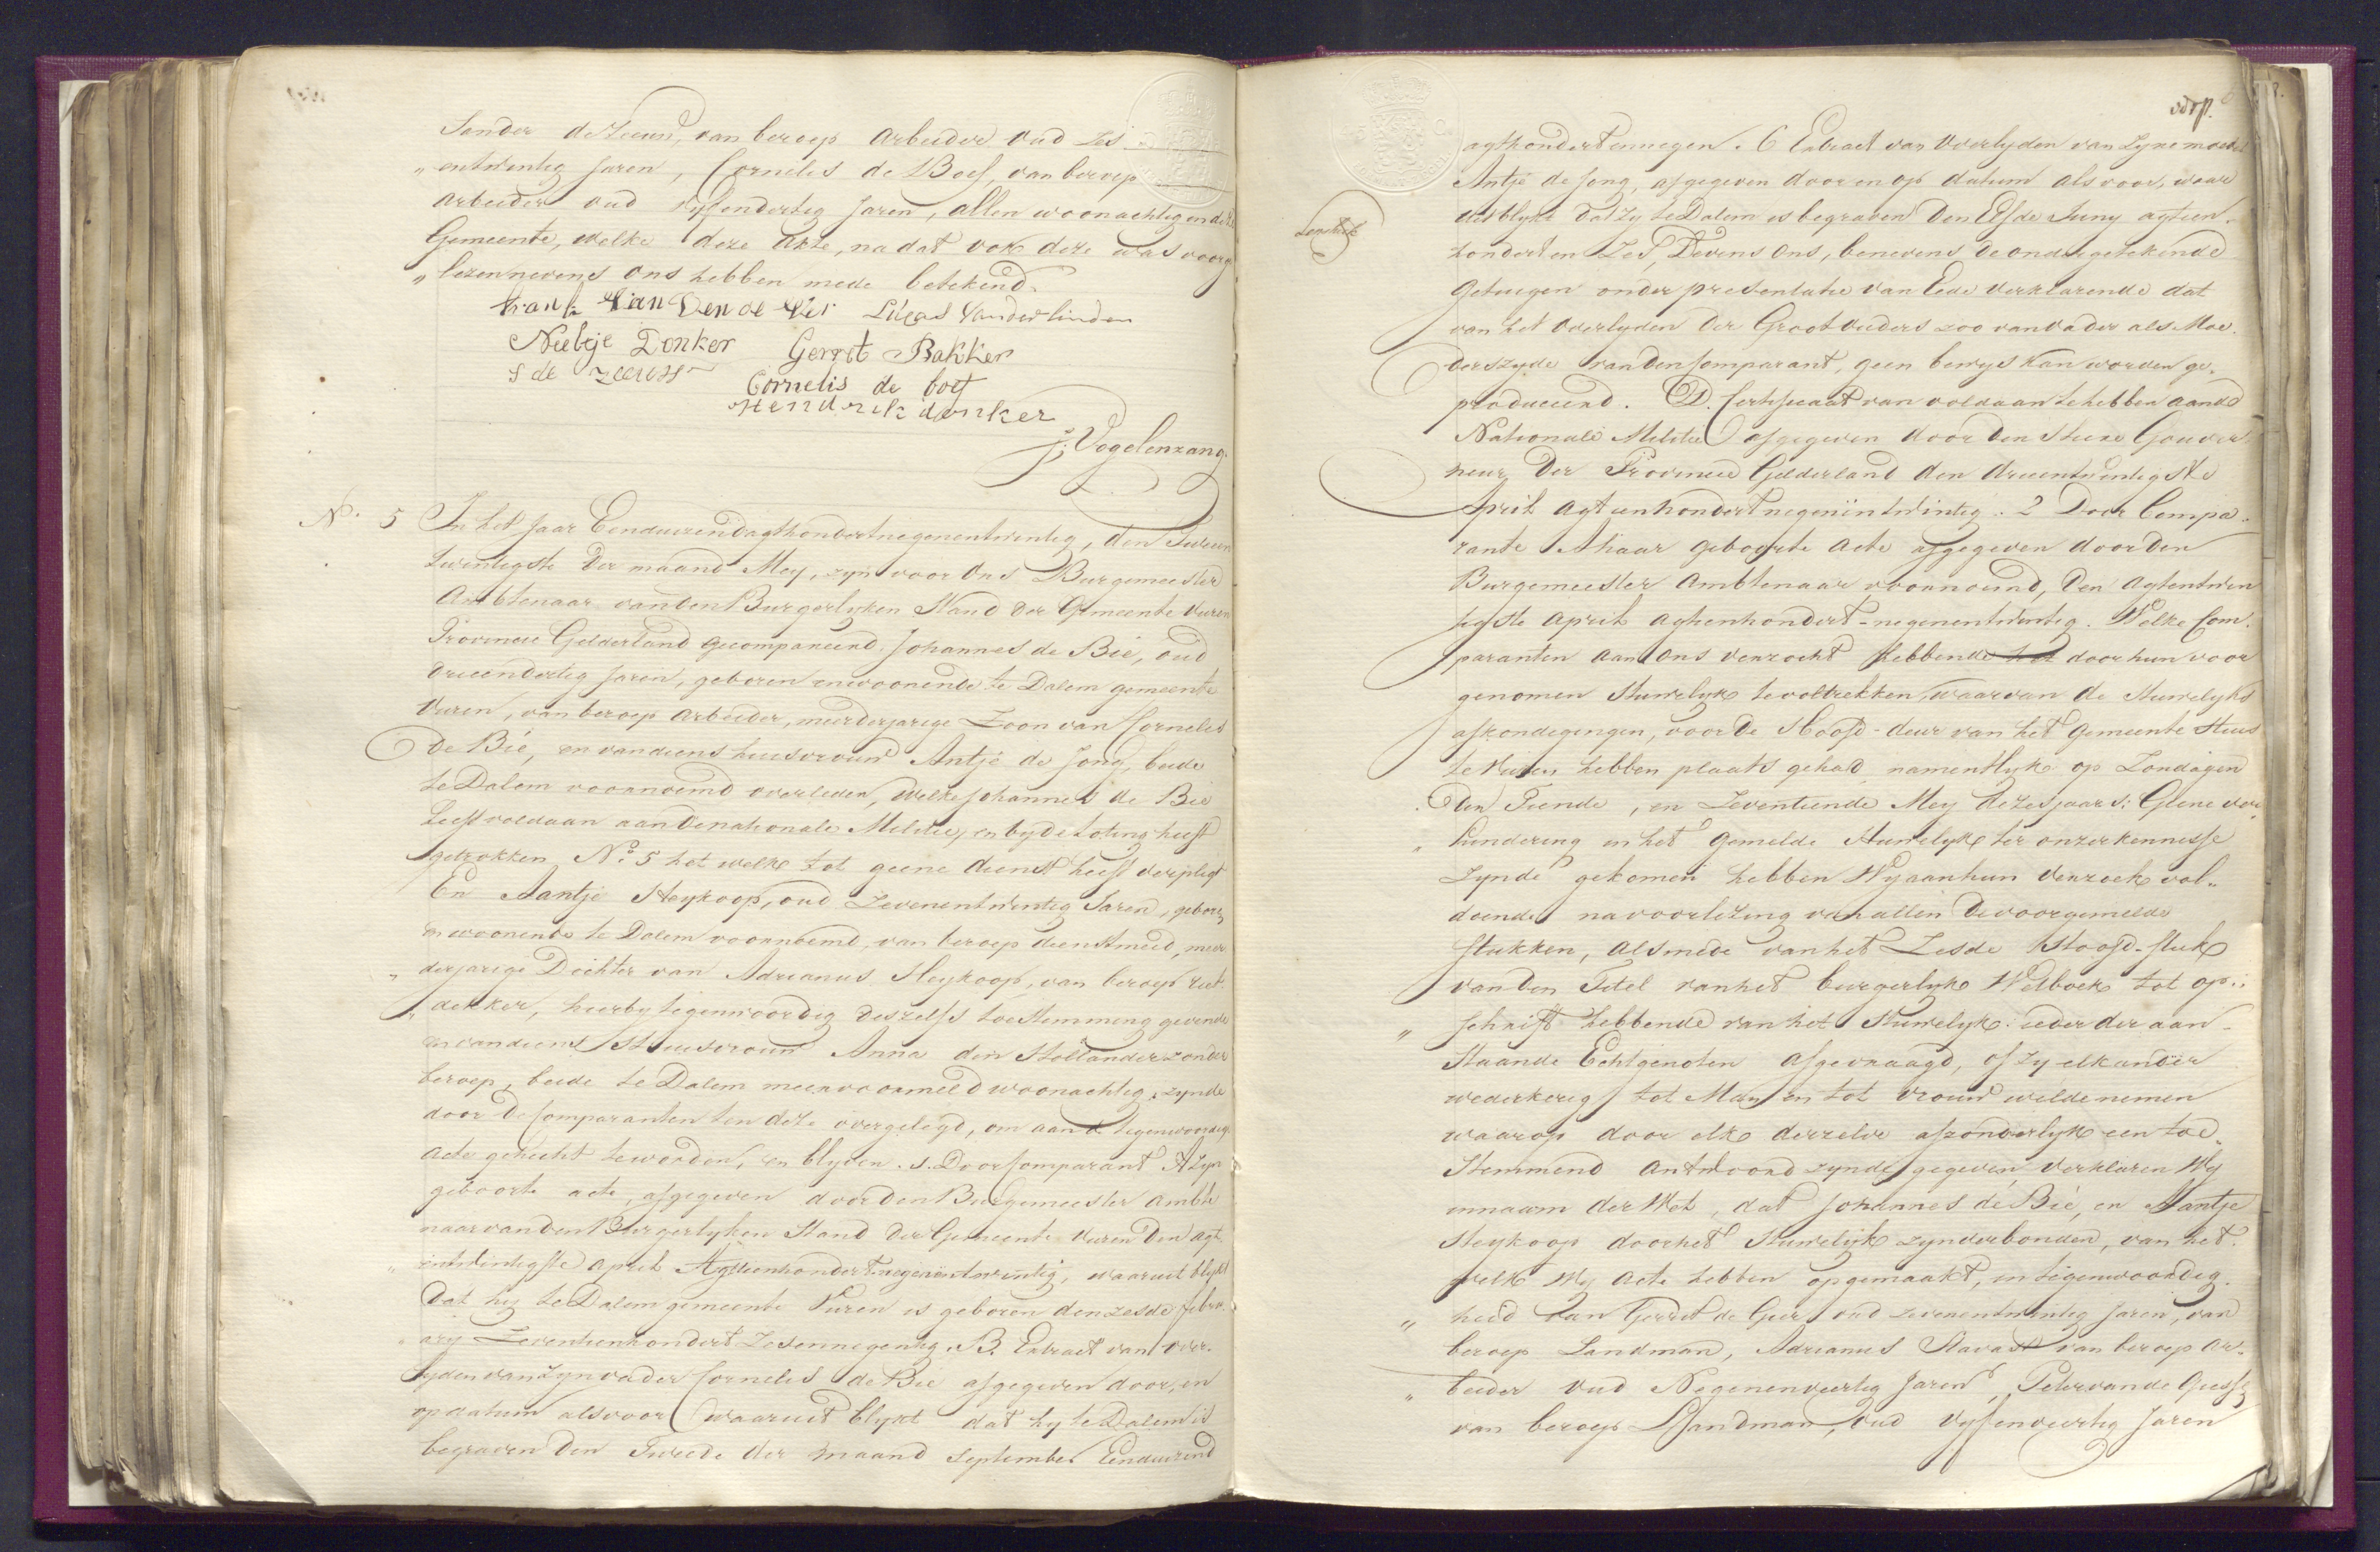 Sander de Zeeuw, van beroep arbeider oud Zes
„ entwintig Jaren, Cornelis de Boef, van beroep
arbeider oud vyfendertig Jaren, allen woonachtig in deze
Gemeente, welke deze akte, na dat voor deze was voorge
„ lezen nevens ons hebben mede betekend.
Lucas Vanderlinden
Nieltje Donker Gerrit Bakker
S de zeeuw
Cornelis de boef
Hendrik donker
J. Vogelenzang.
N. 5 In het Jaar Eenduizendagthondertnegenentwintig, den Tweeen
twintigste der maand Mey, zyn voor Ons Burgemeester
Ambtenaar van den Burgerlyken Stand der Gemeente Vuren
Provincie Gelderland gecompareerd. Johannes de Bie, oud
drieendertig Jaren, geboren en woonende te Dalem gemeente
Vuren, van beroep arbeider, meerderjarige Zoon van Cornelis
de Bie, en van diens huisvrouw Antje de Jong, beide
te Dalem voornoemd overleden, welke Johannes de Bie
heeft voldaan aan de nationale Militie, en by de loting heeft
getrokken No. 5 het welk tot geene dienst heeft verpligt
En Aantje Heykoop, oud Zevenentwintig Jaren, geboren
en woonende te Dalem voornoemd, van beroep dienstmeid, meer
„ derjarige Dochter van Adrianus Heykoop, van beroep riet
„ dekker, hierby tegenwoordig deszelfs toestemming gevende
en van diens Huisvrouw Anna den Hollander zonder
beroep, beide te Dalem meervoormeld woonachtig, zynde
door de Comparanten ten deze overgelegd, om aan de tegenwoordige
acte gehecht te worden, en blyven. 1. Door Comparant A Zyn
geboorte acte, afgegeven door den Burgemeester ambte
naar van den Burgerlyken Stand der Gemeente Vuren den agt
„ entwintigste april Agttienhondertnegenentwintig, waaruit blykt
Dat hy te Dalem gemeente Vuren is geboren den zesde febru
„ ary Zeventienhondert Zesennegentig. B. Extract van over-
lyden van zyn vader Cornelis de Bie afgegeven door, en
op datum als voor waaruit blykt dat hy te Dalem is
begraven den Tweede der maand September Eenduizend
agthondertennegen. C Extract van Overlyden van Zyne moeder
Antje de Jong, afgegeven door en op datum als voor, waar
uit blykt dat zy te Dalem is begraven Den Elfde Juny agtien
hondert en Zes, Tevens Ons, benevens de ondergetekende
Getuigen onder presentatie van Eede verklarende dat
van het Overlyden der Grootouders zoo van vader als Moe
derszyde van den Comparant, geen bewys kan worden ge„
produceerd. D. Certificaat van voldaan te hebben aan de
Nationale Militie afgegeven door den Heere Gouver
neur der Provincie Gelderland den drieentwintigste
April agtienhondertnegenentwintig. 2 Door Compa.
rante A haar geboorte acte afgegeven door den
Burgemeester Ambtenaar voornoemd, Den agtentwin
tigste april agtienhondert-negenentwintig. Welke Com.
paranten aan Ons verzocht hebbende het door hun voor
genomen Huwelyk te voltrekken, waarvan de Huwelyks
afkondigingen, voor de Hoofd-deur van het Gemeente Huis
te Vuren hebben plaats gehad, namentlyk op Zondagen
den Tiende, en Zeventiende Mey dezes jaars: Geene ver
„ hindering in het gemelde Huwelyk ter onzer kennisse
Zynde gekomen hebben Wy aan hun verzoek vol„
doende na voorlezing van allen de voorgemelde
stukken, alsmede van het Zesde Hoofd-stuk
van den Titel van het burgerlyk Wetboek tot op„
„ schrift hebbende van het Huwelyk ieder der aan-
staande Echtgenoten afgevraagd, of zy elkander
wederkerig tot Man en tot vrouw wilde nemen
waarop door elk derzelve afzonderlyk een toe„
stemmend antwoord zynde gegeven, verklaren Wy
innaam der Wet, dat Johannes de Bie, en Aantje
Heykoop door het Huwelyk zyn verbonden, van het
welk Wy acte hebben opgemaakt, in tegenwoordig
„ heid van Gerrit de Geer oud zevenentwintig Jaren, van
beroep Landman, Adrianus Stavast van beroep ar„
„ beider oud Negenenveertig Jaren, Peter van de
van beroep Landman, oud vyfenveertig Jaren